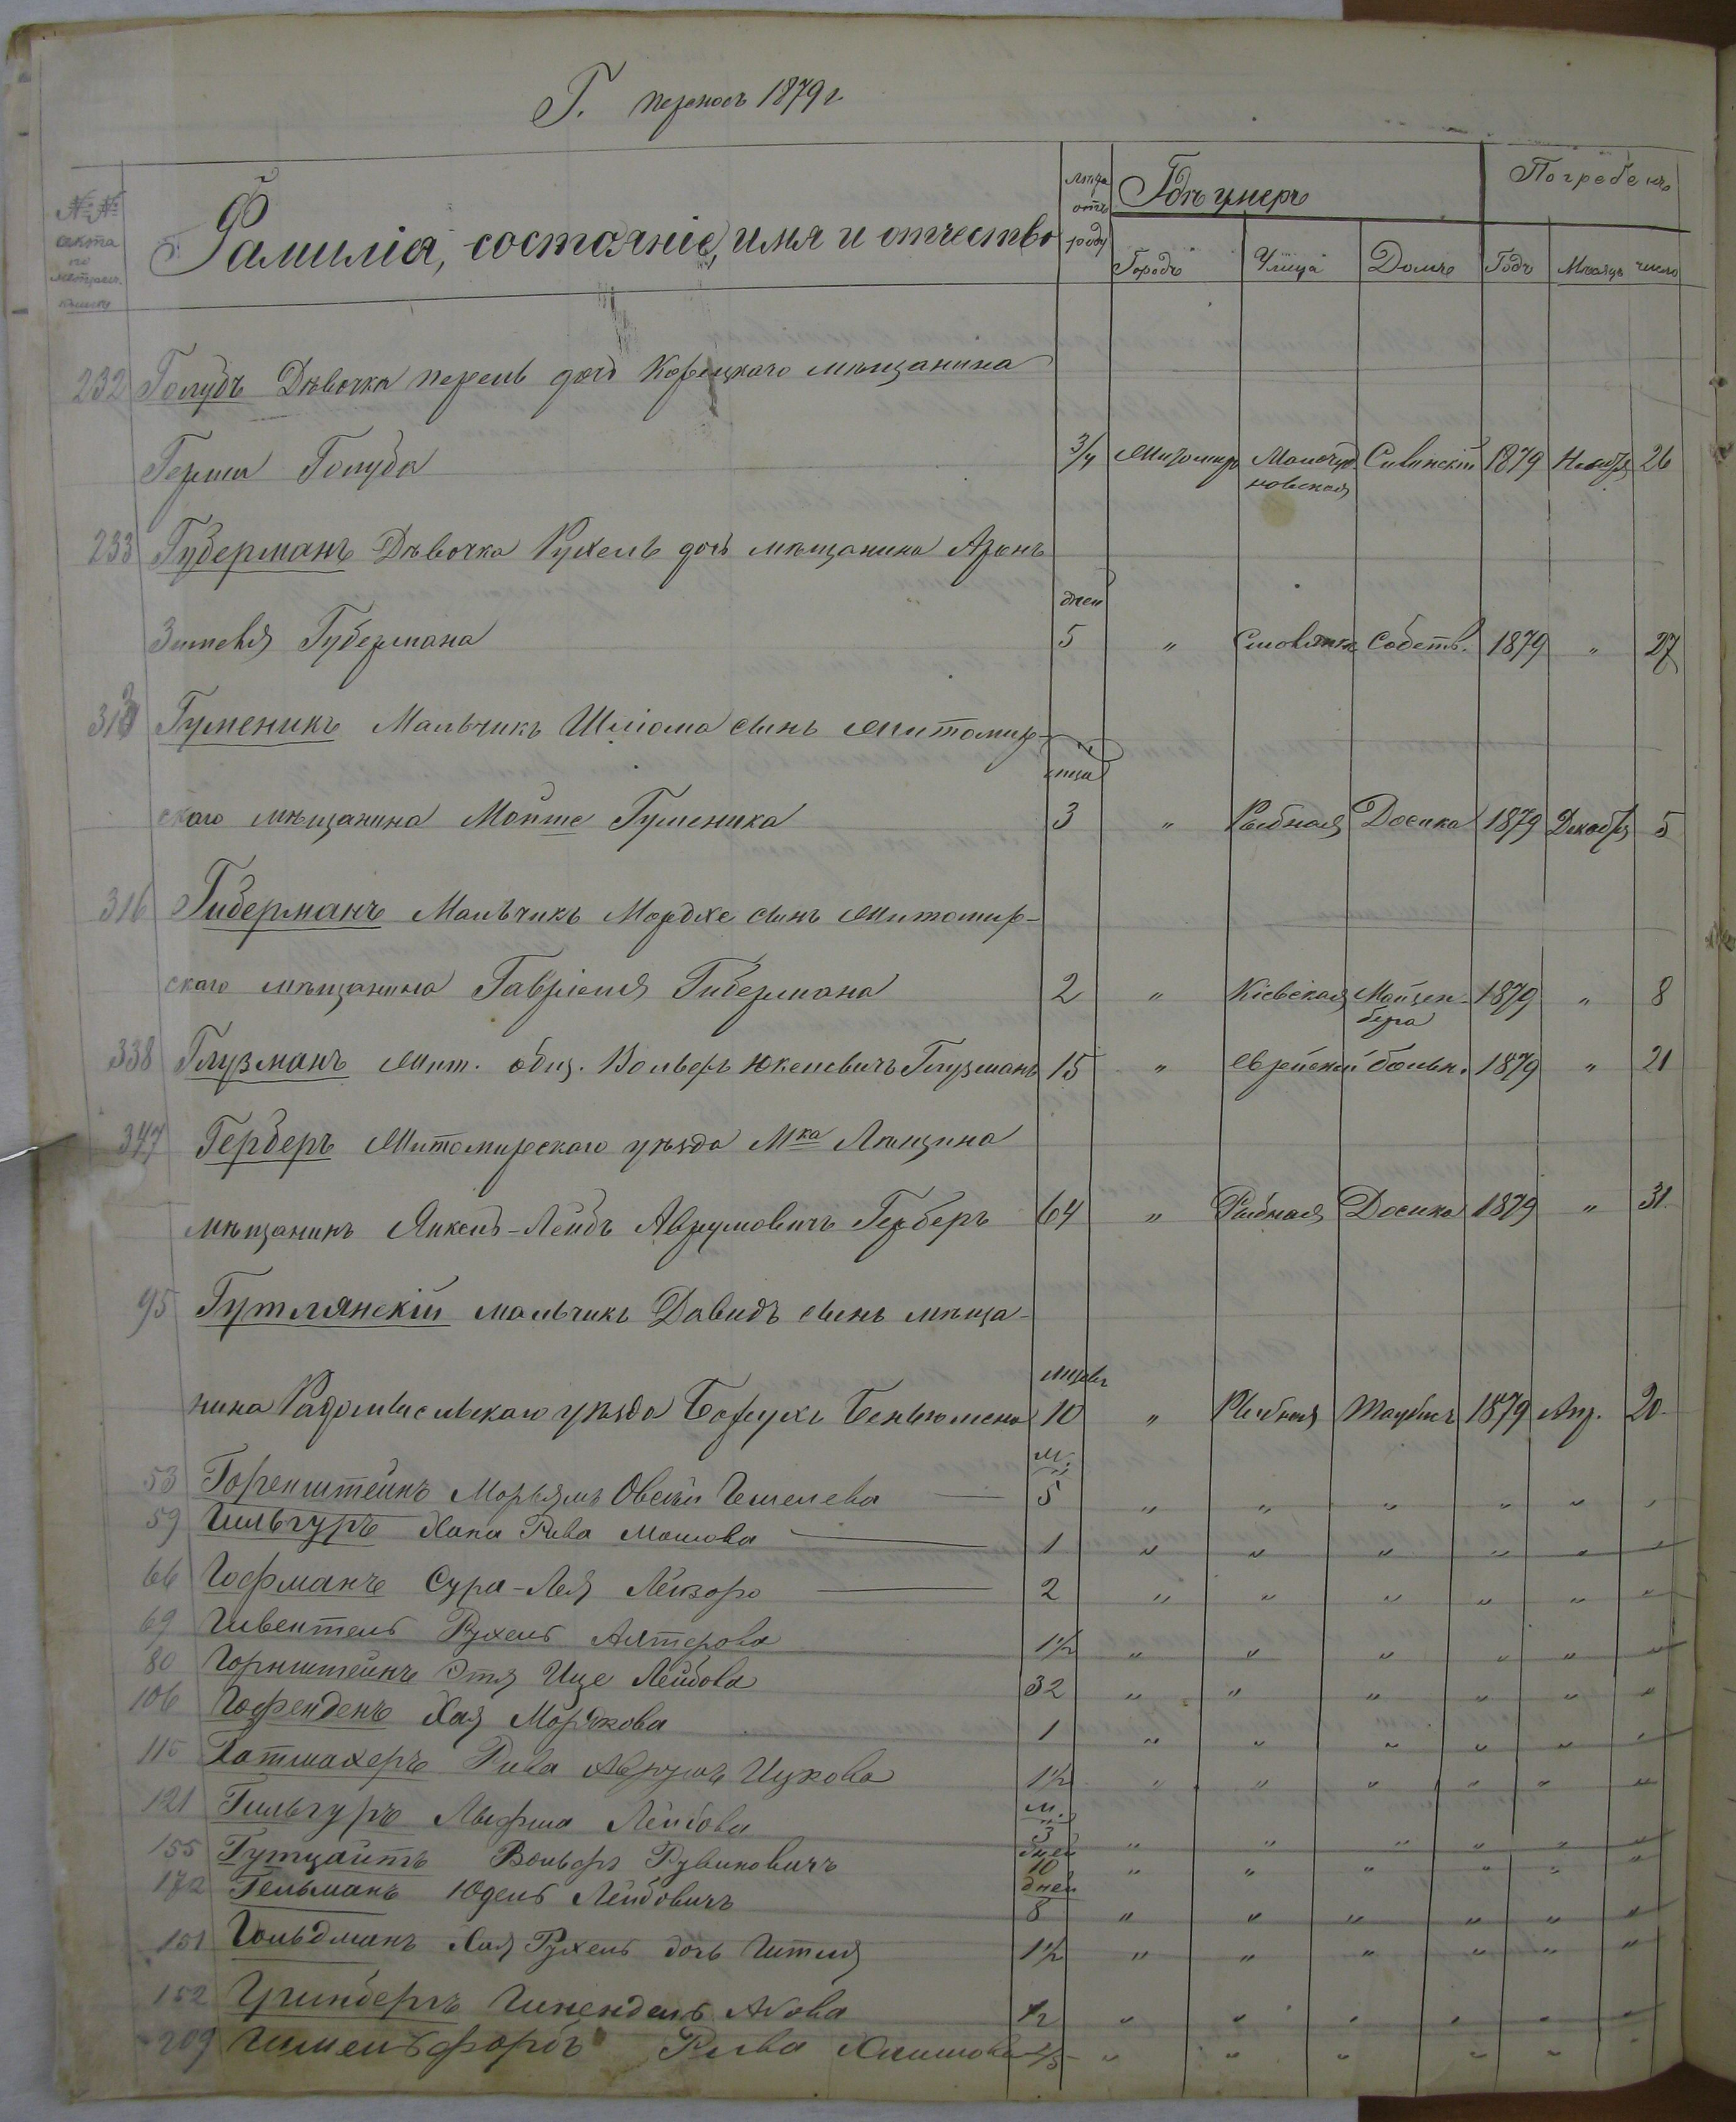 Г. переносъ 1879 г.
№№ акта по метрич. книгѣ
Фамилія, состояніе, имя и отчество
Лѣта отъ роду
Гдѣ умеръ
Погребенъ
Городъ Улица Домъ Годъ Мѣсяцъ число
232 Голубъ Дѣвочка Перель дочь Корецкаго мѣщанина
Герша Голуба 3/4 Житомиръ Малочуд новская Сивинскій 1879 Ноября 26
233 Губерманъ Дѣвочка Рухель дочь мѣщанина Аронъ
дней
Зителя Губермана 5 " Смолянка Собств. 1879 " 27
313 Гуменикъ Мальчикъ Шліома сынъ Житомир-
скаго мѣщанина Мойше Гуменика 3 " Рыбная Досика 1879 Декабря 5
316 Гиберманъ Мальчикъ Мордхе сынъ Житомир-
скаго мѣщанина Гавріеля Гибермана 2 " Кіевская Майзен- берга 1879 " 8
338 Глузманъ Жит. общ. Вольфъ Юкелевичъ Глузманъ 15 " Еврейской больн. 1879 " 21
347 Герберъ Житомирскаго уѣзда Мка Лѣщина
мѣщанинъ Янкель-Лейбъ Аврумовичъ Герберъ 64 " Рыбная Досика 1879 " 31
95 Гутлянскій мальчикъ Давидъ сынъ мѣща-
нина Радомысльскаго уѣзда Борухъ Беньюмена 10 " Рыбная 1879 Апр. 20
м.
53 Горенштейнъ Марьямъ Овсѣй 5 " " " " " "
59 Гильгуръ Хана Рива Мошкова 1 " " " " " "
66 Гофманъ Сура-Лея Лейзоро 2 " " " " " "
69 Гивентель Рухель Алтерова 1½ " " " " " "
80 Горнштейнъ Этя Ице Лейбова 32 " " " " " "
106 Гофенденъ Хая Моркова 1 " " " " " "
115 Гатмахеръ Рива Аврумъ Ицкова 1½ " " " " " "
м.
121 Гильгуръ Лейбова 3 " " " " " "
дней
155 Гутцайтъ Вольфъ Рувиновичъ 10 " " " " " "
дней
172 Гельманъ Юдель Лейбовичъ 8 " " " " " "
151 Гольдманъ Хая Рухель дочь Гитля 1½ " " " " " "
152 Гринбергъ ½ " " " " " "
209 Гимельфарбъ Рива " " " " " "